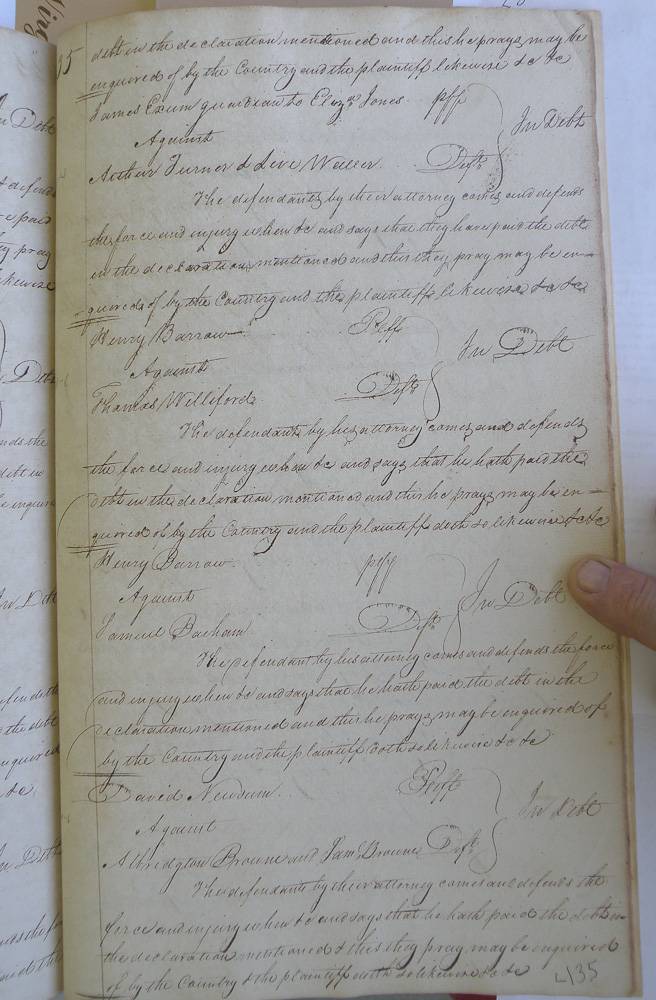 35 debt in the declaration mentioned and this he prays may be
enquired of by the Country and the plaintiff likewise &c &c
James Exum guardian to Eliza Jones plff
Against In Debt
Arthur Turner & Sive Waller Defts
The defendants by their attorney comes and defends
the force and injury when &c and says that they have paid the debt
in the declaration mentioned and this they pray may be en-
quired of by the Country and the plaintiff likewise &c &c
Henry Barrow Plff
Against In Debt
Thomas Williford Deft
The defendant by his attorney comes and defends
the force and injury when &c and says that he hath paid the
debt in the declaration mentioned and this he prays may be en-
quired of by the Country and the plaintiff doth so likewise &c &c
Henry Barrow plff
Against In Debt
Samuel Basham Deft
The defendant by his attorney comes and defends the force
and injury when &c and says that he hath paid the debt in the
declaration mentioned and this he prays may be enquired of
by the Country and the plaintiff doth so likewise &c &c
David Newsum Plff
Against In debt
Albridgton Browne and Jams Browne Defts
The defendants by their attorney comes and defends the
force and injury when &c and says that he hath paid the debt in
the declaration mentioned & this they pray may be enquired
of by the Country & the plaintiff doth so likewise &c &c
135